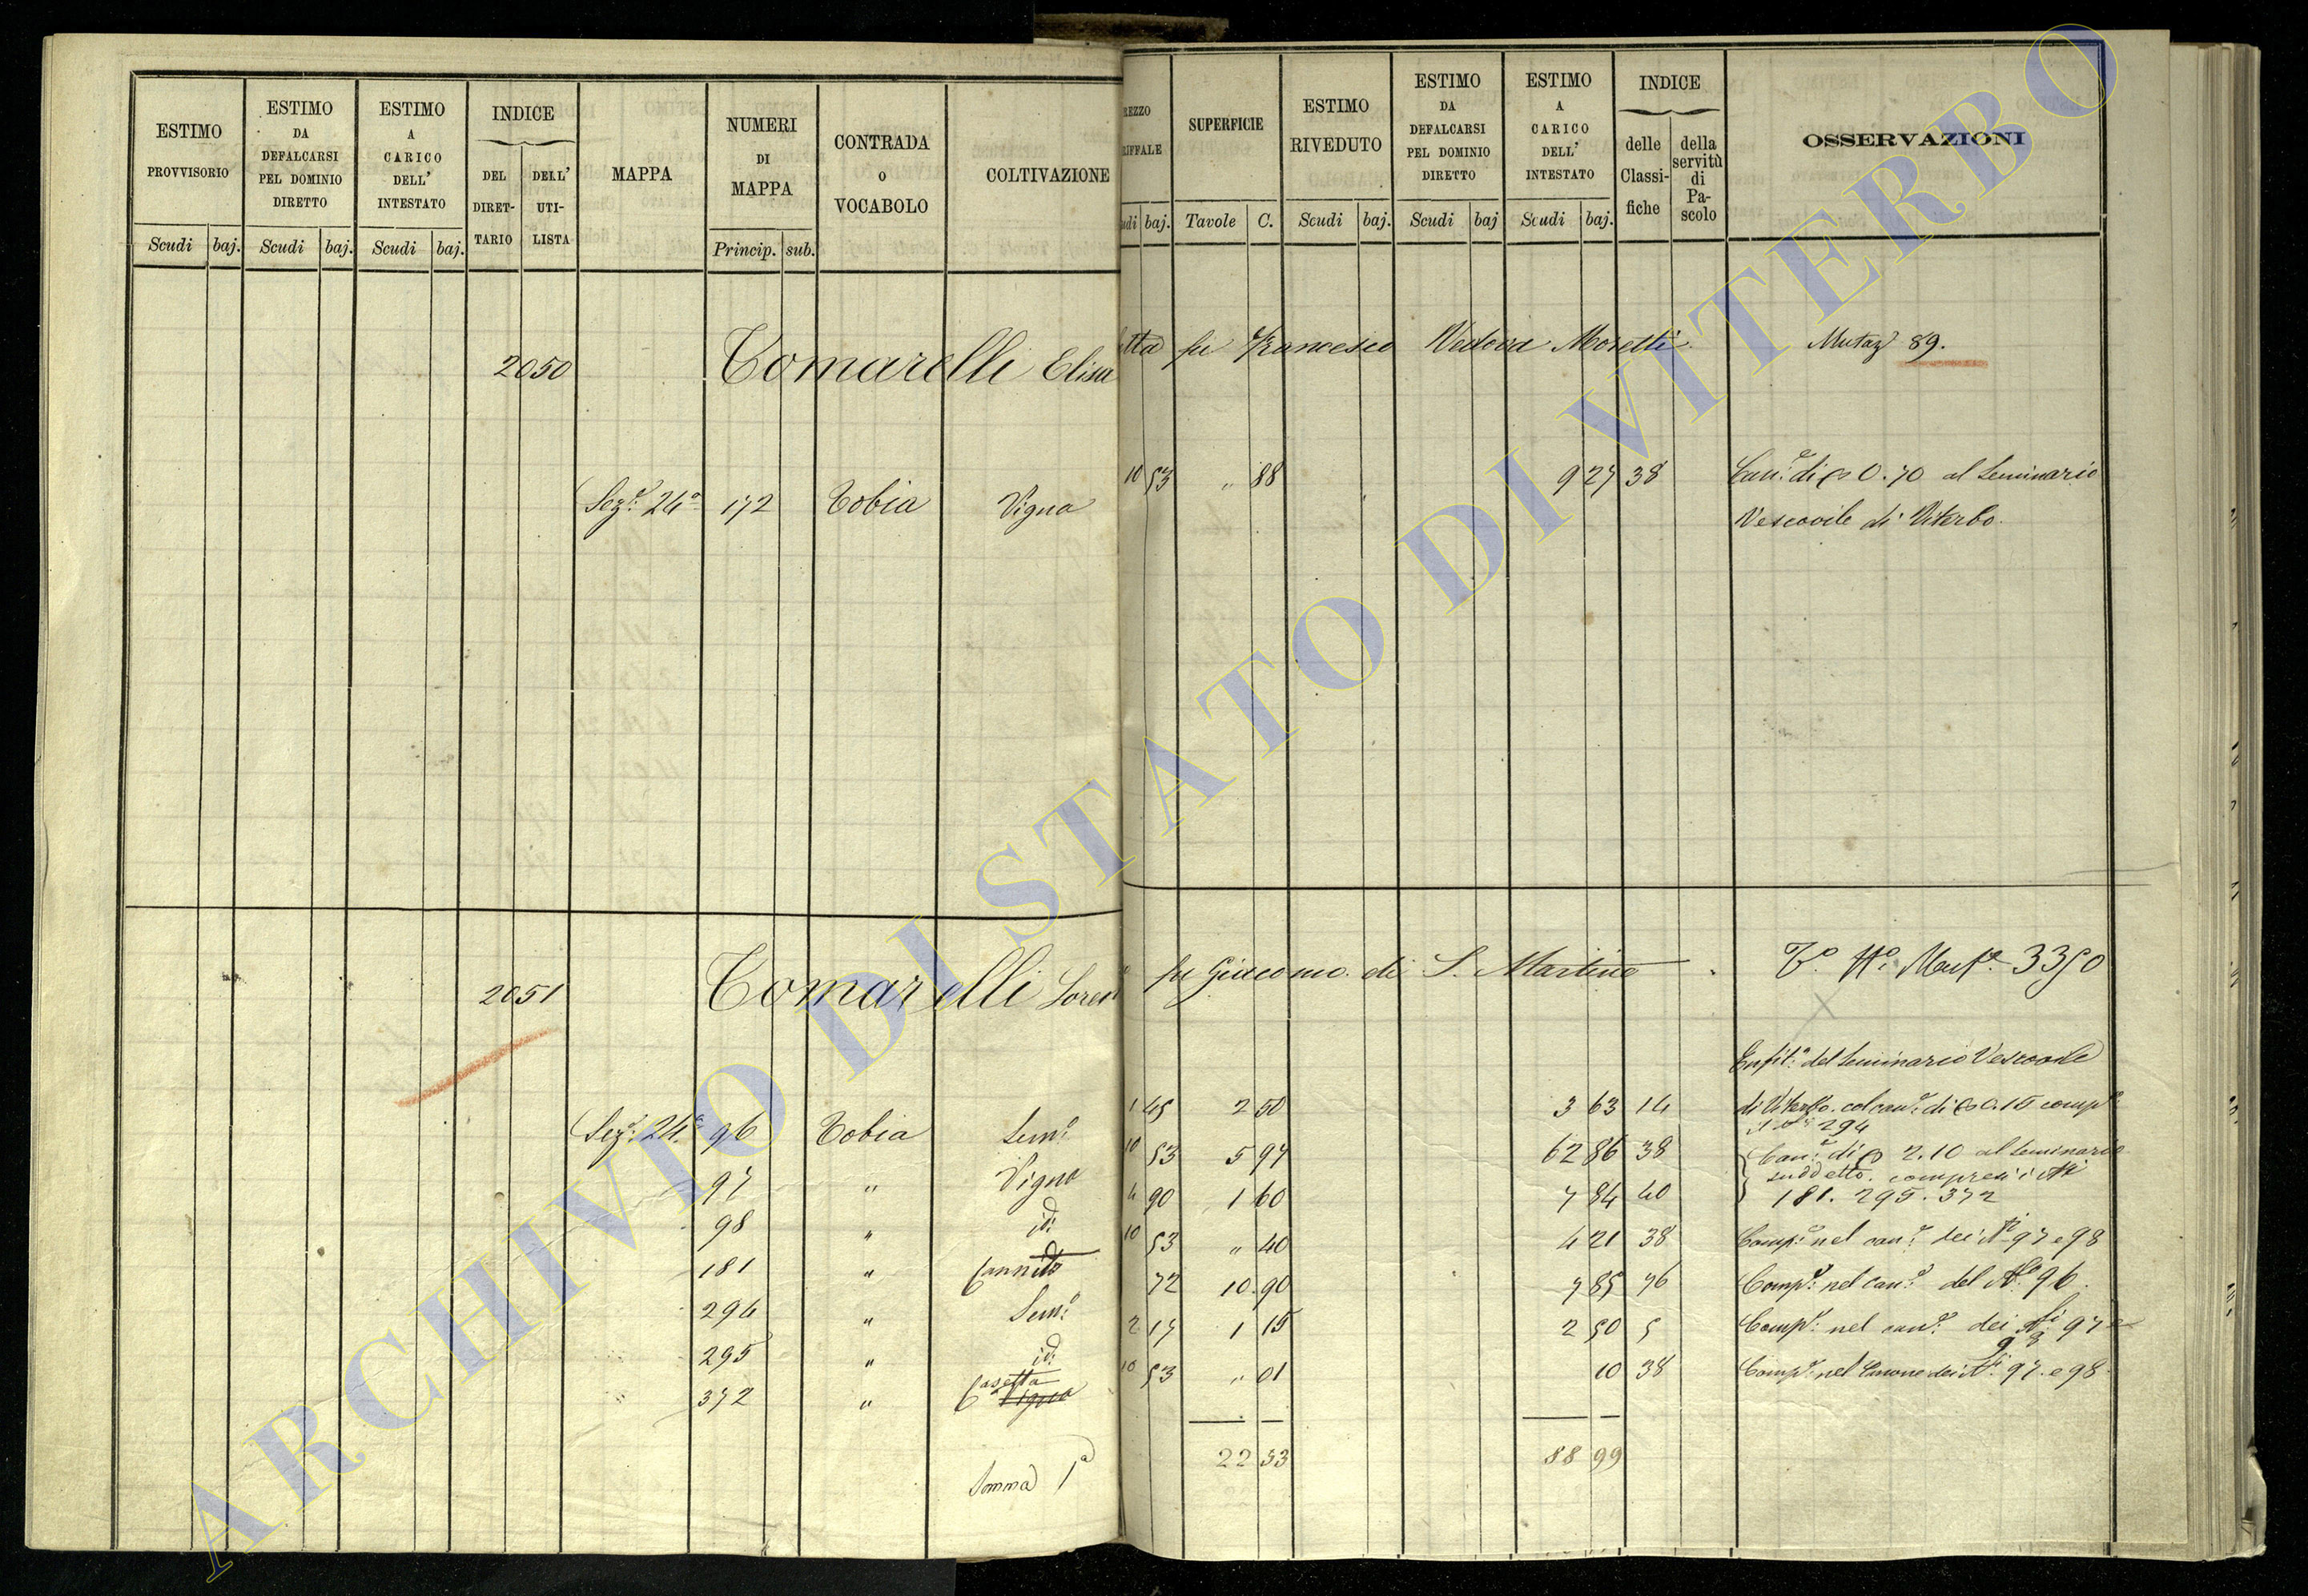 ESTIMO PROVVISORIO
Scudi baj.
ESTIMO DA DEFALCARSI PEL DOMINIO DIRETTO
Scudi baj.
ESTIMO A CARICO DELL' INTESTATO
Scudi baj.
INDICE
DEL DIRET-TARIO
DELL' UTI-LISTA
MAPPA
NUMERI DI MAPPA
Princip. sub.
CONTRADA O VOCABOLO
COLTIVAZIONE
REZZO RIFFALE
udi baj.
SUPERFICIE
Tavole C.
ESTIMO RIVEDUTO
Scudi baj.
ESTIMO DA DEFALCARSI PEL DOMINIO DIRETTO
Scudi baj
ESTIMO A CARICO DELL' INTESTATO
Scudi baj.
INDICE
delle Classi-fiche
della servitù di Pa-scolo
OSSERVAZIONI
2050 Tomarelli Elisa tta fu Francesco Vedova Moretti Mutaz 89.
Sez.e 24a 172 Tobia Vigna 10 53 " 88 9 27 38 Can.e di 0.70 al Seminario
Vescovile di Viterbo.
2051 Tomarelli Loren fu Giacomo di S. Martino 3350
Enfit.a del Seminario Vescovile
Sez.e 24a 96 Tobia Sem.o 1 45 2 50 3 63 14 di Viterbo col can.e di 0.15 comp.o
294
97 " Vigna 10 53 5 97 62 86 38 Can.e di 2.10 al Seminario
suddetto compresi i Ni
98 " id. 4 90 1 60 7 84 40 181. 295. 372
181 " id. Canneto 10 53 " 40 4 21 38 Comp.o nel can.e dei Ni 97 e 98
294 " Sem.o 72 10.90 7 85 76 Comp.o nel can.e del No 96.
295 " id. 2 17 1 15 2 50 5 Comp.o nel can.e dei Ni 97 e
98
372 " Casetta Vigna 10 53 " 01 10 38 Comp.o nel Canone dei Ni 97. e 98
Somma 1a 22 53 88 99
ARCHIVIO DI STATO DI VITERBO